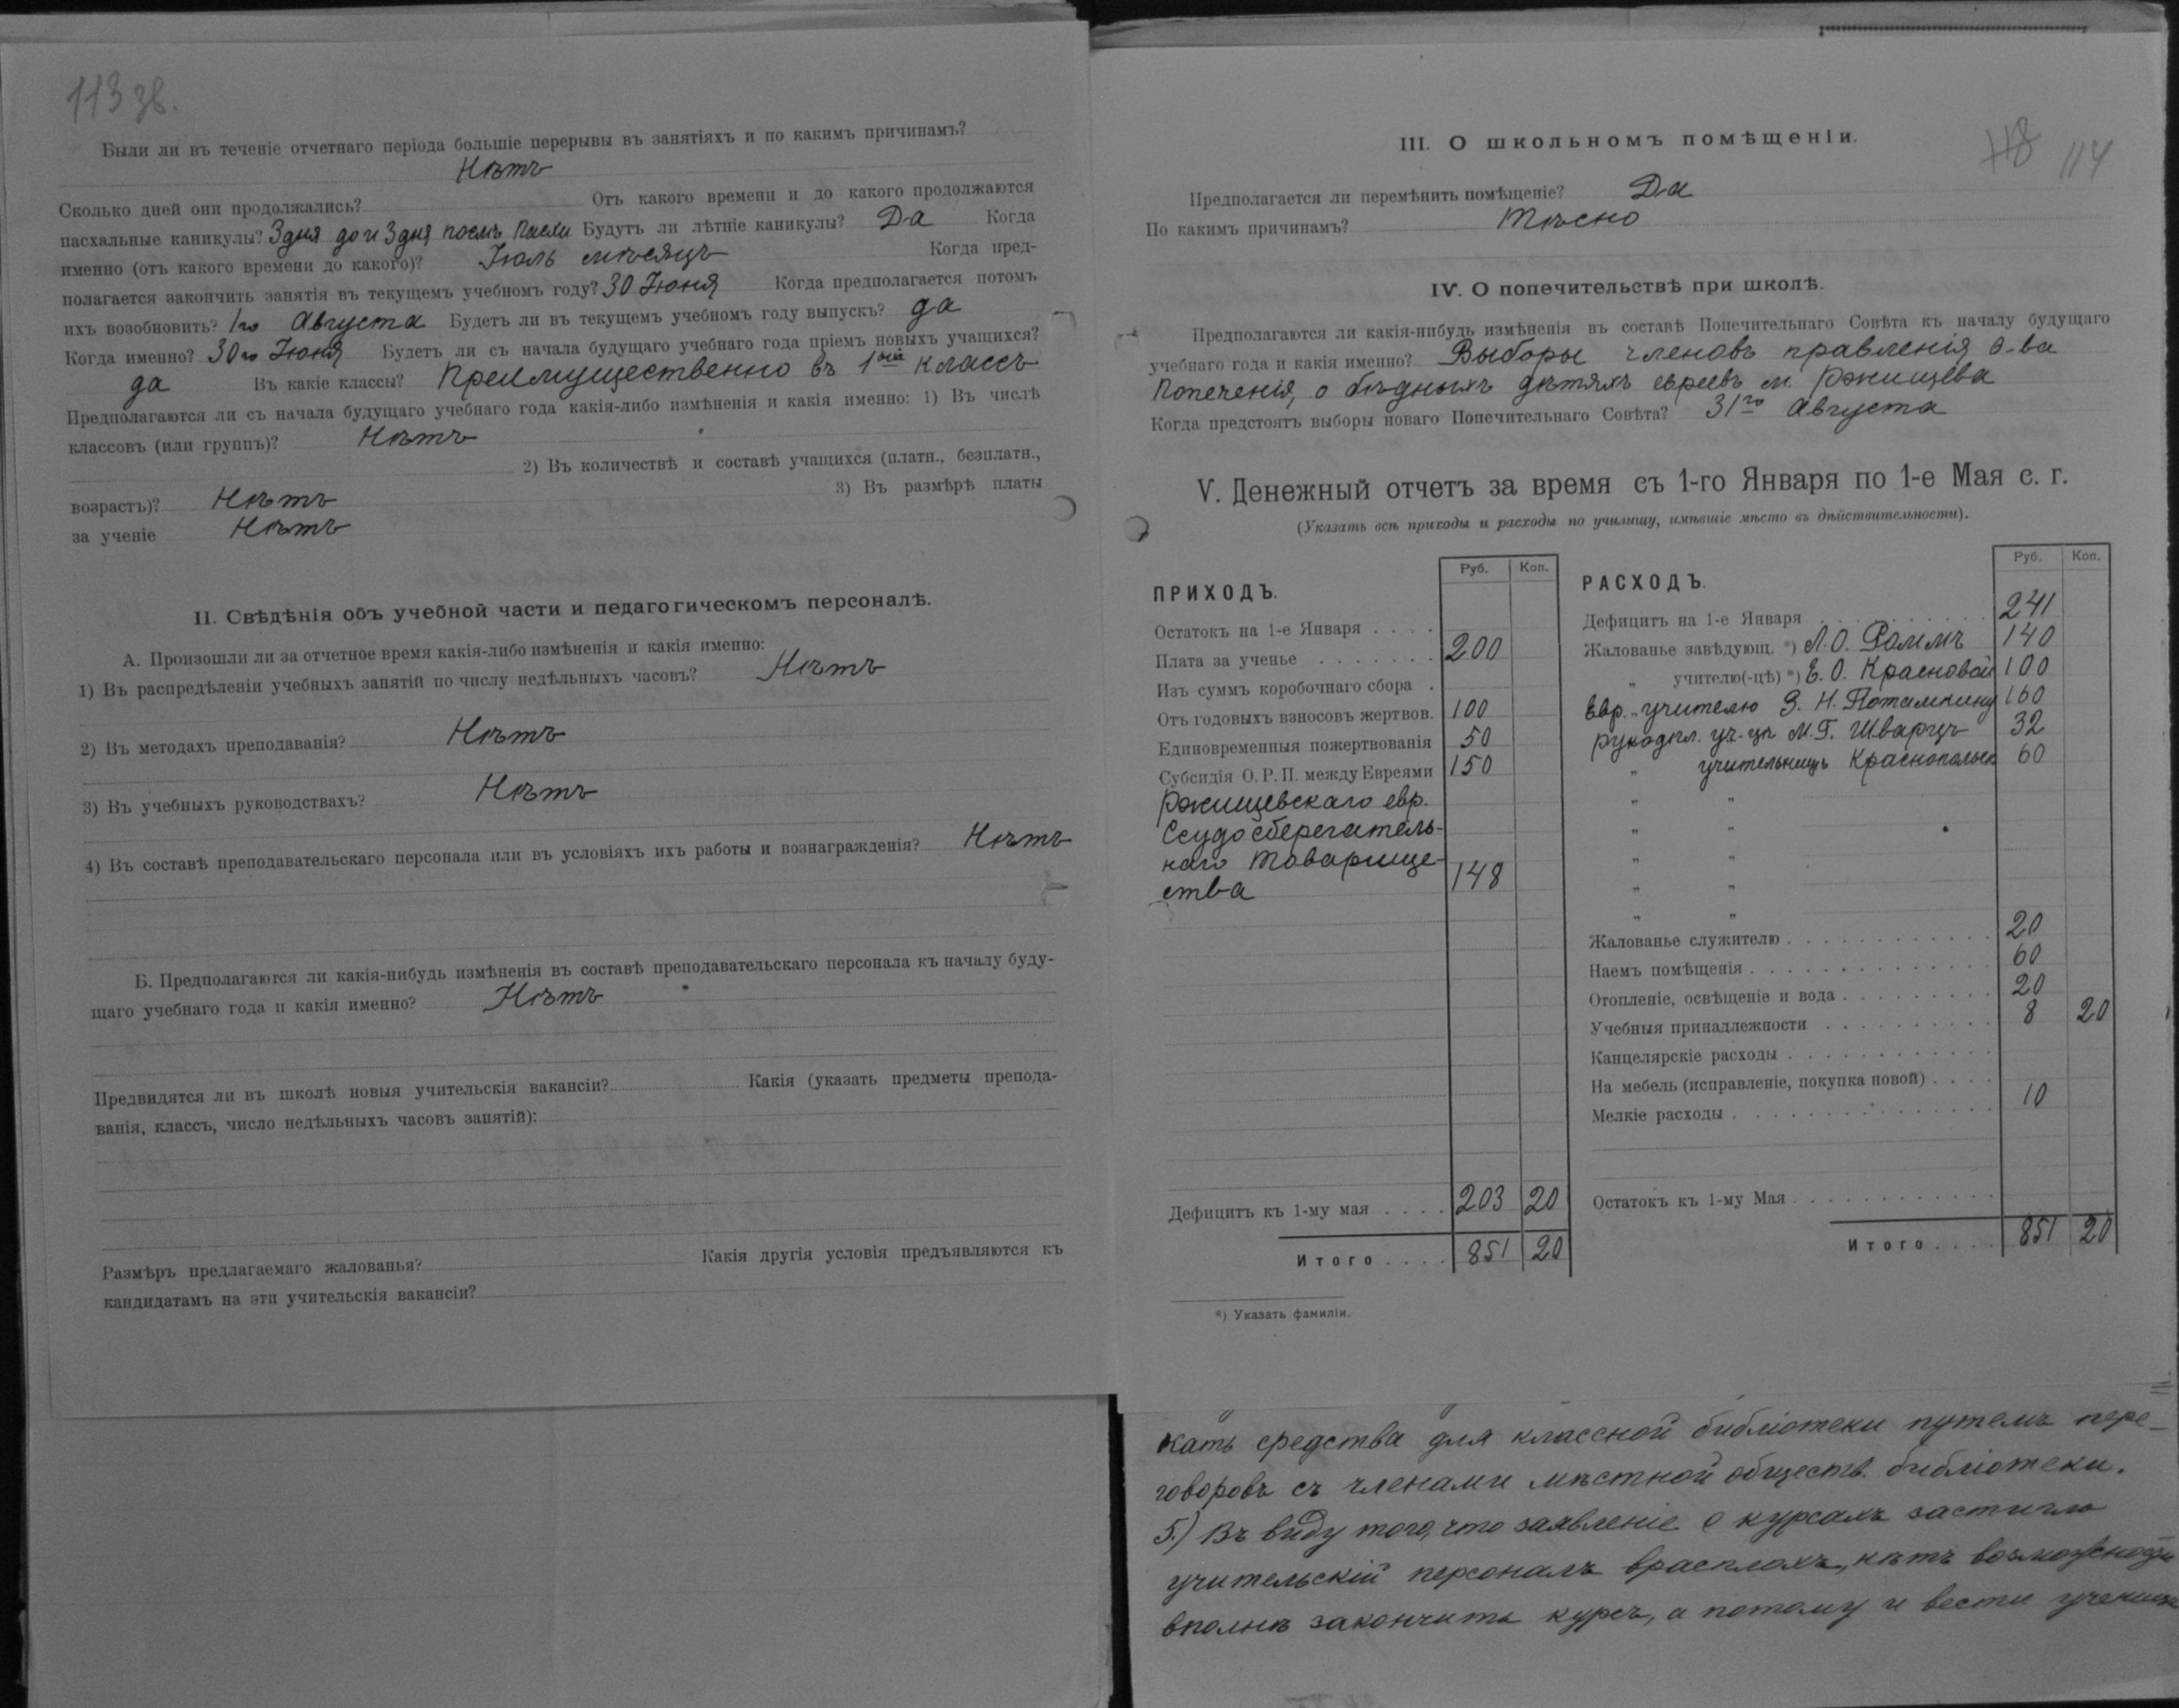 113 зв.
Были ли въ теченіе отчетнаго періода большіе перерывы въ занятіяхъ и по какимъ причинамъ?
Нѣтъ
Сколько дней они продолжались? Отъ какого времени и до какого продолжаются
пасхальные каникулы? 3 дня до и 3 дня послѣ Пасхи Будутъ ли лѣтніе каникулы? Да Когда
именно (отъ какого времени до какого)? Іюль мѣсяцъ Когда пред-
полагается закончить занятія въ текущемъ учебномъ году? 30 Іюня Когда предполагается потомъ
ихъ возобновить? 1го Августа Будетъ ли въ текущемъ учебномъ году выпускъ? да
Когда именно? 30го Іюня Будетъ ли съ начала будущаго учебнаго года пріемъ новыхъ учащихся?
да Въ какіе классы? Преимущественно въ 1ый классъ
Предполагаются ли съ начала будущаго учебнаго года какія-либо измѣненія и какія именно: 1) Въ числѣ
классовъ (или группъ)? Нѣтъ
2) Въ количествѣ и составѣ учащихся (платн., безплатн.,
возрастъ)? Нѣтъ 3) Въ размѣрѣ платы
за ученіе Нѣтъ
II. Свѣдѣнія объ учебной части и педагогическомъ персоналѣ.
А. Произошли ли за отчетное время какія-либо измѣненія и какія именно:
1) Въ распредѣленіи учебныхъ занятій по числу недѣльныхъ часовъ? Нѣтъ
2) Въ методахъ преподаванія? Нѣтъ
3) Въ учебныхъ руководствахъ? Нѣтъ
4) Въ составѣ преподавательскаго персонала или въ условіяхъ ихъ работы и вознагражденія? Нѣтъ
Б. Предполагаются ли какія-нибудь измѣненія въ составѣ преподавательскаго персонала къ началу буду-
щаго учебнаго года и какія именно? Нѣтъ
Предвидятся ли въ школѣ новыя учительскія вакансіи? Какія (указать предметы препода-
ванія, классъ, число недѣльныхъ часовъ занятій):
Размѣръ предлагаемаго жалованья? Какія другія условія предъявляются къ
кандидатамъ на эти учительскія вакансіи?
118 114
III. О школьномъ помѣщеніи.
Предполагается ли перемѣнить помѣщеніе? Да
По какимъ причинамъ? Тѣсно
IV. О попечительствѣ при школѣ.
Предполагаются ли какія-нибудь измѣненія въ составѣ Попечительнаго Совѣта къ началу будущаго
учебнаго года и какія именно? Выборы членовъ правленія О-ва
Попеченія, о бѣдныхъ дѣтяхъ евреевъ м. Ржищева
Когда предстоятъ выборы новаго Попечительнаго Совѣта? 31го Августа
V. Денежный отчетъ за время съ 1-го Января по 1-е Мая с. г.
(Указать всѣ приходы и расходы по училищу, имѣвшіе мѣсто въ дѣйствительности).
ПРИХОДЪ. Руб. Коп.
Остатокъ на 1-е Января . . . .
Плата за ученье . . . . . . . 200
Изъ суммъ коробочнаго сбора .
Отъ годовыхъ взносовъ жертвов. 100
Единовременныя пожертвованія 50
Субсидія О. Р. П. между Евреями 150
Ржищевскаго евр.
Ссудосберегатель-
наго товарище-
ства 148
Дефицитъ къ 1-му мая . . . . 203 20
Итого . . . . 851 20
*) Указать фамиліи.
РАСХОДЪ. Руб. Коп.
Дефицитъ на 1-е Января . . . . . . . . . . . 241
Жалованье завѣдующ. *) Л. О. Раммъ 140
„ учителю(-цѣ) *) Е. О. Красновой 100
Евр. „ учителю З. Н. Потамкину 160
рукодѣл. уч-цѣ М. Г. Шварцъ 32
„ учительницѣ 60
„ „
„ „
„ „
„ „
„ „
Жалованье служителю . . . . . . . . . . . . 20
Наемъ помѣщенія . . . . . . . . . . . . . . 60
Отопленіе, освѣщеніе и вода . . . . . . . . . 20
Учебныя принадлежности . . . . . . . . . . 8 20
Канцелярскіе расходы . . . . . . . . . . . .
На мебель (исправленіе, покупка новой) . . . .
Мелкіе расходы . . . . . . . . . . . . . . . 10
Остатокъ къ 1-му Мая . . . . . . . . . . . .
Итого . . . . 851 20
кать средства для классной библіотеки путемъ пере-
говоровъ съ членами мѣстной обществ. библіотеки.
5.) Въ виду того, что заявленіе о курсахъ застигло
учительскій персоналъ врасплохъ, нѣтъ возможности
вполнѣ закончить курсъ, а потому и вести